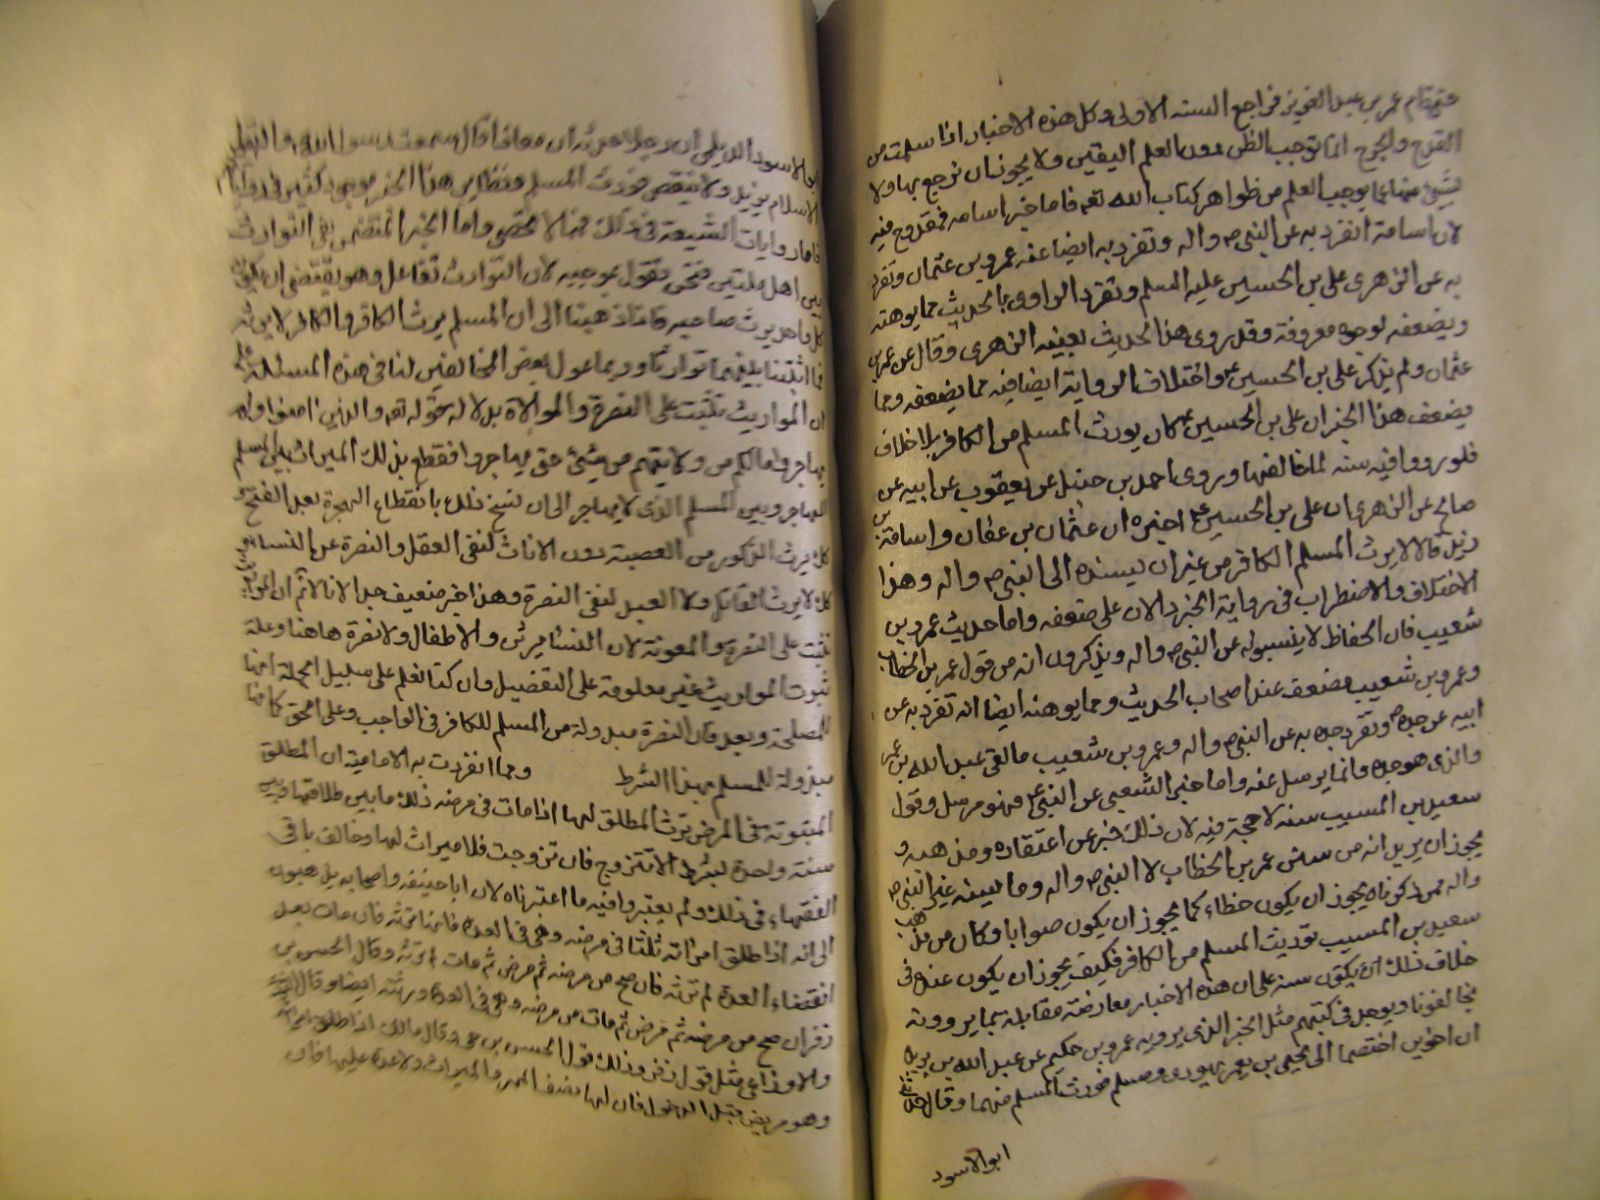 حتى قام عمر بن عبد العزيز فراجع السنة الاولى وكل هذه الاخبار اذا سلمت من
القدح والجرح انما توجب الظن دون العلم اليقين ولا يجوز ان نرجع بها ولا
بشيء منها عما يوجب العلم من ظواهر كتاب الله تعه فاما خبر اسامه فمقدوح فيه
لان اسامة انفرد به عن النبي صه واله وتفرد به ايضا عنه عمرو بن عثمان وتفرد
به عن الزهرى على بن الحسين عليه السلم وتفرد الراوى بالحديث مما يوهنه
ويضعفه لوجوه معروفة وقد روى هذا الحديث بعينه الزهرى وقال عن عمر بن
عثمان ولم يذكر على بن الحسين ع واختلاف الرواية ايضا فيه مما يضعفه ومما
يضعف هذا الخبر ان على بن الحسين ع كان يورث المسلم من الكافر بلا خلاف
فلو روى فيه سنه لما خالفها وروى احمد بن حنبل عن يعقوب عن ابيه عن
صالح عن الزهرى ان على بن الحسين ع اخبره ان عثمان بن عفان واسامة بن
زيد قالا لا يرث المسلم الكافر من غير ان يسنده الى النبي صه واله وهذا
الاختلاف والاضطراب فى رواية الخبر دالان على ضعفه واما حديث عمرو بن
شعيب فان الحفاظ لا ينسبوله عن النبي صه واله ويذكرون انه من قول عمر بن الخطاب
وعمرو بن شعيب مضعف عند اصحاب الحديث ومما يوهنه ايضا انه تفرد به عن
ابيه عن جده وتفرد جده به عن النبي صه واله وعمرو بن شعيب ما لقى عبد الله بن عمر
والذى هو جده وانما يرسل عنه واما خبر الشعبى عن النبي ع فهو مرسل وقول
سعيد بن المسيب سنه لا حجة فيه لان ذلك خبر عن اعتقاده ومذهبه و
يجوز ان يريد انه من سنن عمر بن الخطاب لا النبي صه واله وما يسنه غير النبي صه
واله ممن ذكرناه يجوز ان يكون خطاء كما يجوز ان يكون صوابا وكان من مذهب
سعيد بن المسيب توريث المسلم من الكافر فكيف يجوز ان يكون عنده فى
خلاف ذلك ان يكون سنه على ان هذه الاخبار معارضة مقابلة بما يروونه
مخالفونا ويوجد فى كتبهم مثل الخبر الذى يرويه عمرو بن حكيم عن عبد الله بن بريده
ان اخوين اختصما الى يحيى بن يعمر يهودى ومسلم فورث المسلم منهما وقال حدثنى
ابو الاسود
ابو الاسود الديلى ان رجلا حدثه ان معاذا قال سمعت رسول الله واله يقول
الاسلام يزيد ولا ينقص فورث المسلم ونظاير هذا الخبر موجود كثير فى رواياتهم
فاما روايات الشيعة فى ذلك فمما لا تحصى واما الخبر المتضمن نفى التوارث
بين اهل ملتين فنحن نقول بموجبه لان التوارث تفاعل وهو يقتضى ان يكون
كل واحد يرث صاحبه فاذا ذهبنا الى ان المسلم يرث الكافر والكافر لا يرثه
فما اثبتنا بينهما توارثا وربما عول بعض المخالفين لنا فى هذه المسئلة على
ان المواريث تثبت على النصرة والموالاة بدلالة قوله تعه والذين امنوا ولم
يهاجروا مالكم من ولايتهم من شئ حتى يهاجروا فقطع بذلك الميراث بين المسلم
المهاجر وبين المسلم الذى لا يهاجر الى ان نسخ ذلك بانقطاع الهجرة بعد الفتح و
كك يرث الذكور من العصبة دون الاناث لنفى العقل والنصرة عن النساء و
كك لا يرث القاتل ولا العبد لنفى النصرة وهذا خبر ضعيف جدا لانا لا نم ان المواريث
تثبت على النصرة والمعونة لان النساء يرثن والاطفال ولا نصرة هاهنا وعلة
ثبوت المواريث غير معلومة على التفصيل وان كنا نعلم على سبيل الجملة انها
للمصلحة وبعد فان النصرة مبذولة من المسلم للكافر فى الواجب وعلى الحق كما انها
مبذولة للمسلم بهذا الشرط ومما انفردت به الامامية ان المطلق
المبتوتة فى المرض ترث المطلق لها اذا مات فى مرضه ذلك ما بين طلاقها وبين
سنة واحدة بشرط الا تتزوج فان تزوجت فلا ميراث لها وخالف باقى
الفقهاء فى ذلك ولم يعتبروا فيه ما اعتبرناه لان ابا حنيفه واصحابه يذهبون
الى انه اذا طلق امرأته ثلثا فى مرضه وهى فى العدة فانها ترثه فان مات بعد
انقضاء العدة لم ترثه فان صح من مرضه ثم مرض ثم مات لم ترثه وقال الحسن بن
زفر ان صح من مرضه ثم مرض ثم مات من مرضه وهى فى العدة ورثته ايضا وقال
والاوزاعى مثل قول زفر وذلك قول الحسن بن حى وقال مالك اذا طلق امرأته
وهو مريض قبل الدخول فان لها نصف المهر والميراث ولا عدة عليها فان